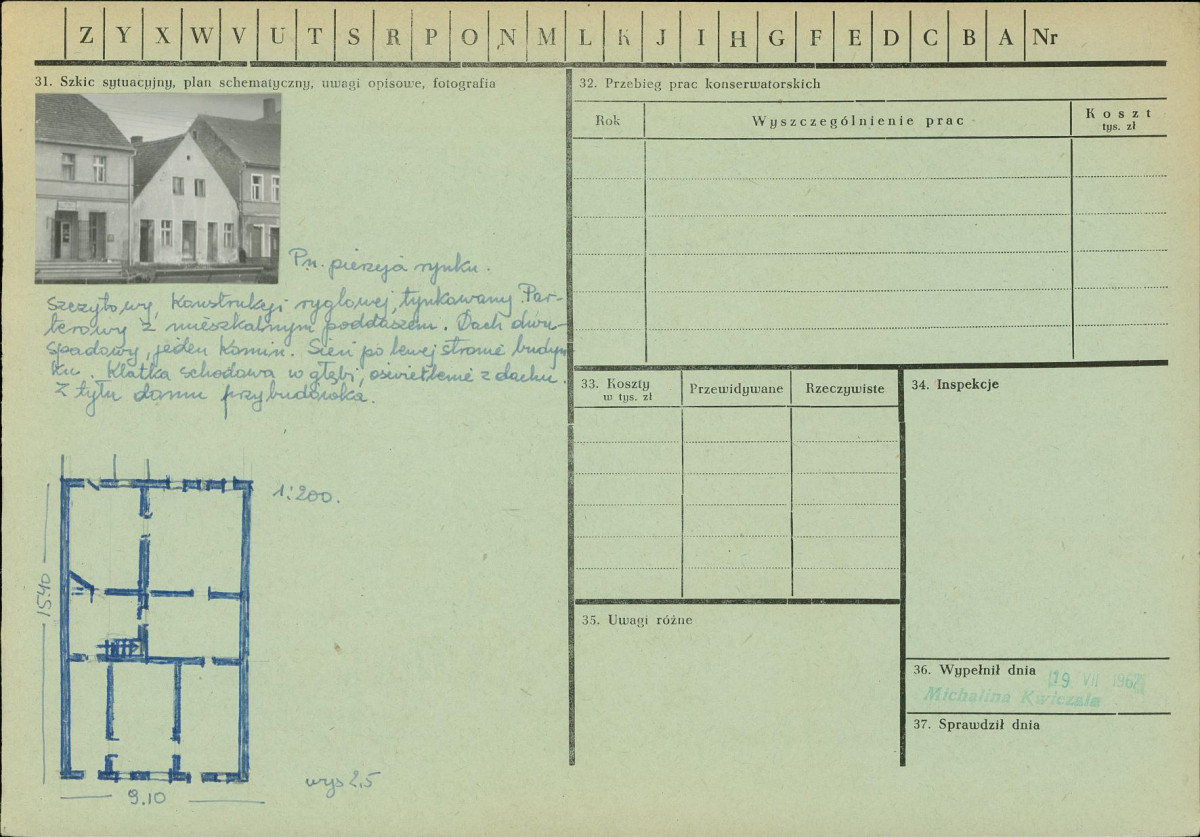 Z Y X W V U T S R P O N M L K J I H G F E D C B A Nr
31. Szkic sytuacyjny, plan schematyczny, uwagi opisowe, fotografia
Pn. pierzeja rynku.
Szczytowy, Konstrukcji ryglowej, tynkowany. Par-
terowy z mieszkalnym poddaszem. Dach dwu-
spadowy, jeden Komin. Sień po lewej stronie budyn
ku. Klatka schodowa w głębi, oświetlenie z dachu.
Z tyłu domu przybudówka.
1:200.
15.40
9.10
wys 2,5
32. Przebieg prac konserwatorskich
Rok
Wyszczególnienie prac
Koszt
tys. zł
33. Koszty
w tys. zł
Przewidywane
Rzeczywiste
34. Inspekcje
35. Uwagi różne
36. Wypełnił dnia
19 VII 1962
Michalina Kwiczala
37. Sprawdził dnia